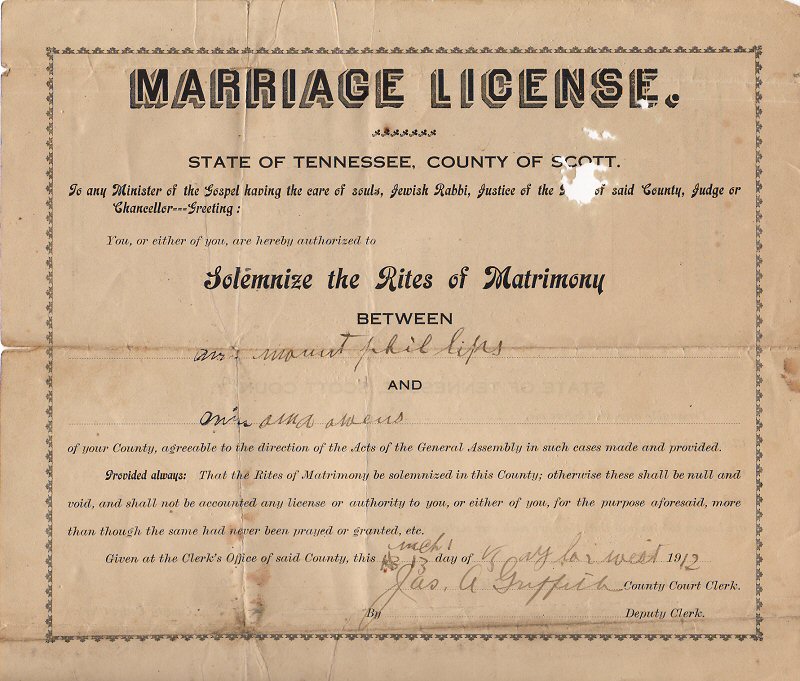 MARRIAGE LICENSE.
STATE OF TENNESSEE, COUNTY OF SCOTT.
To any Minister of the Gospel having the care of souls, Jewish Rabbi, Justice of the of said County, Judge or
Chancellor---Greeting:
You, or either of you, are hereby authorized to
Solemnize the Rites of Matrimony
BETWEEN
mount phillips
AND
owens
of your County, agreeable to the direction of the Acts of the General Assembly in such cases made and provided.
Provided always: That the Rites of Matrimony be solemnized in this County; otherwise these shall be null and
void, and shall not be accounted any license or authority to you, or either of you, for the purpose aforesaid, more
than though the same had never been prayed or granted, etc.
Given at the Clerk's Office of said County, this 13 day of 1912
Jas. A Griffith County Court Clerk.
By Deputy Clerk.